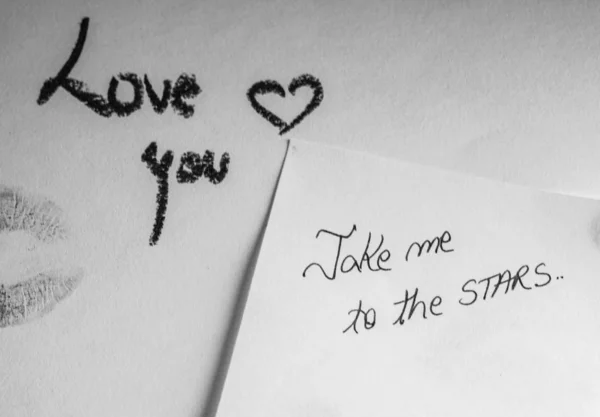 Love
you
Take me
to the STARS..